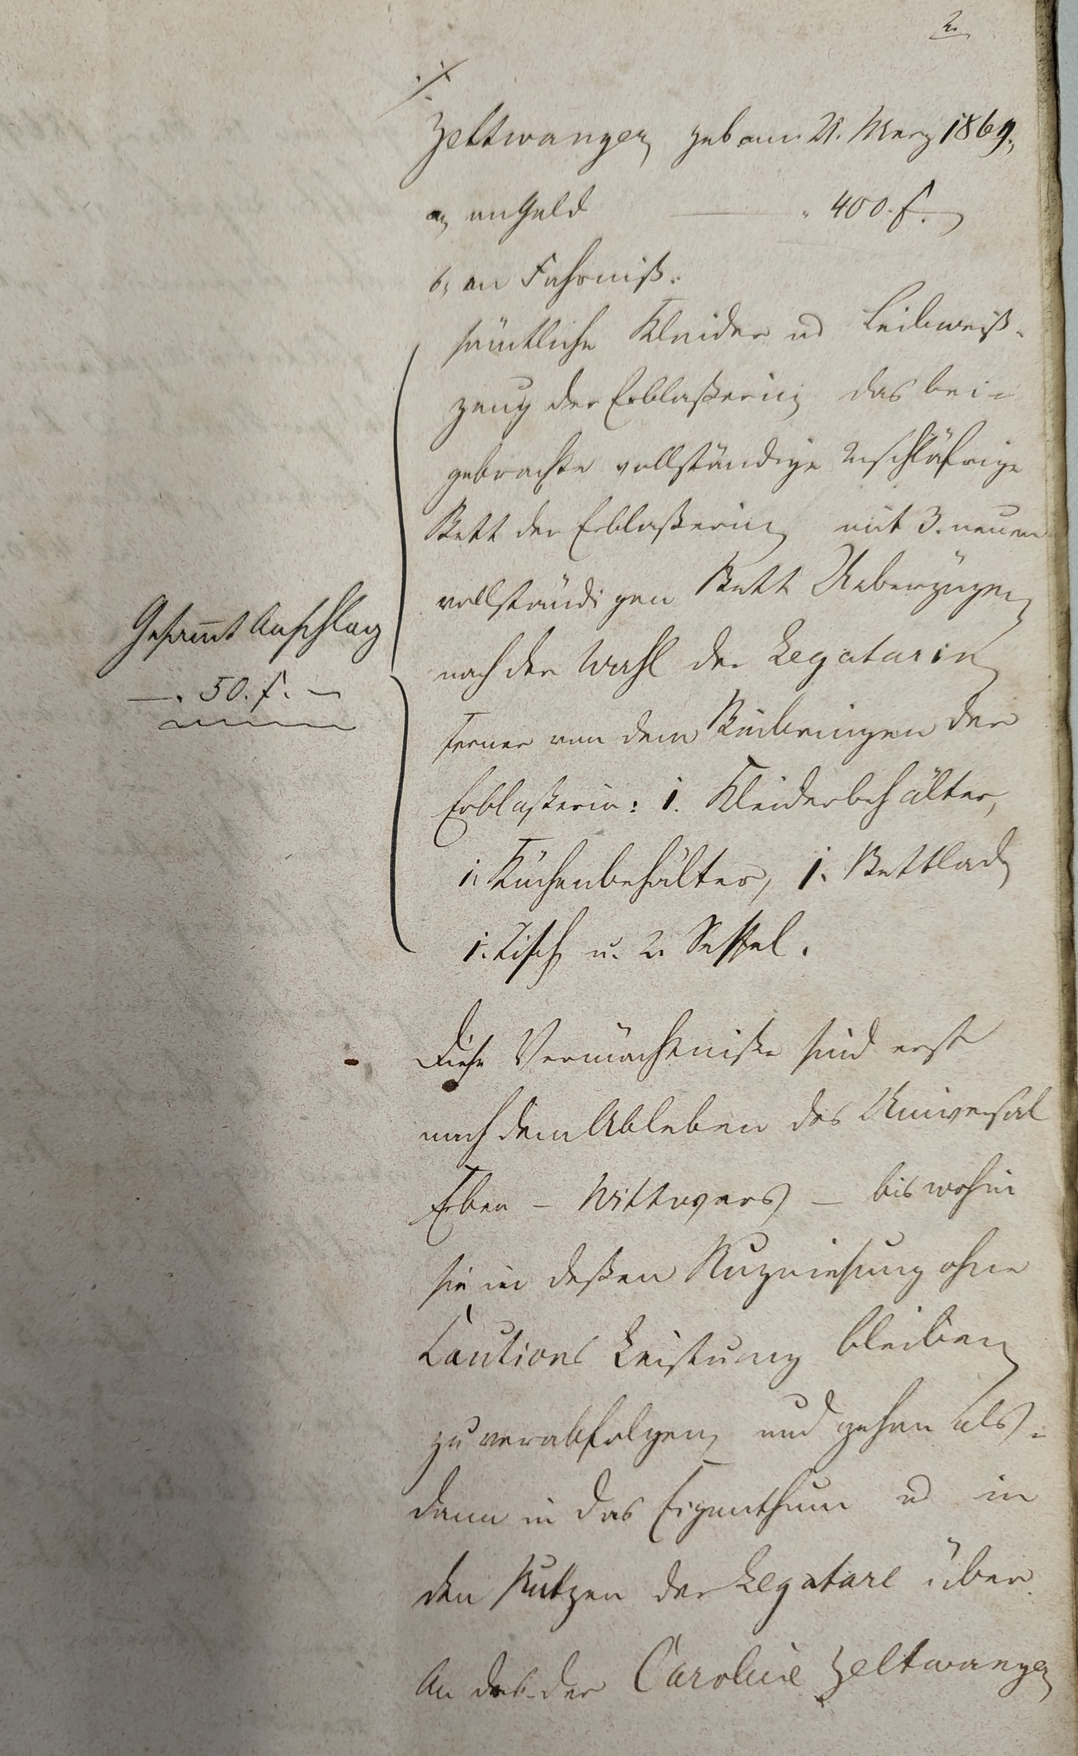 2.
./.
Zeltwanger, geb am 21. Merz 1869.,
a, an Geld — . 400. f.
b, an Fahrniß:
sämtliche Kleider und Leibweiß-
zeug der Erblaßerin, das bei-
gebrachte vollständige 2schläfrige
Bett der Erblaßerin, mit 3. neuen
vollständigen Bett Ueberzügen,
nach der Wahl der Legatarin,
Gesammt Anschlag
—. 50. f. —
ferner von dem Beibringen der
Erblaßerin: 1. Kleiderbehälter,
1. Küchenbehälter, 1. Bettlad,
1. Tisch u. 2. Seßel.
Diese Vermächtniße sind erst
nach dem Ableben des Universal
Erben – Wittwers – bis wohin
sie in deßen Nuzniesung ohne
Cautions Leistung bleiben,
zu verabfolgen, und gehen als-
dann in das Eigenthum und in
den Nutzen der Legatare über.
An der Caroline Zeltwanger